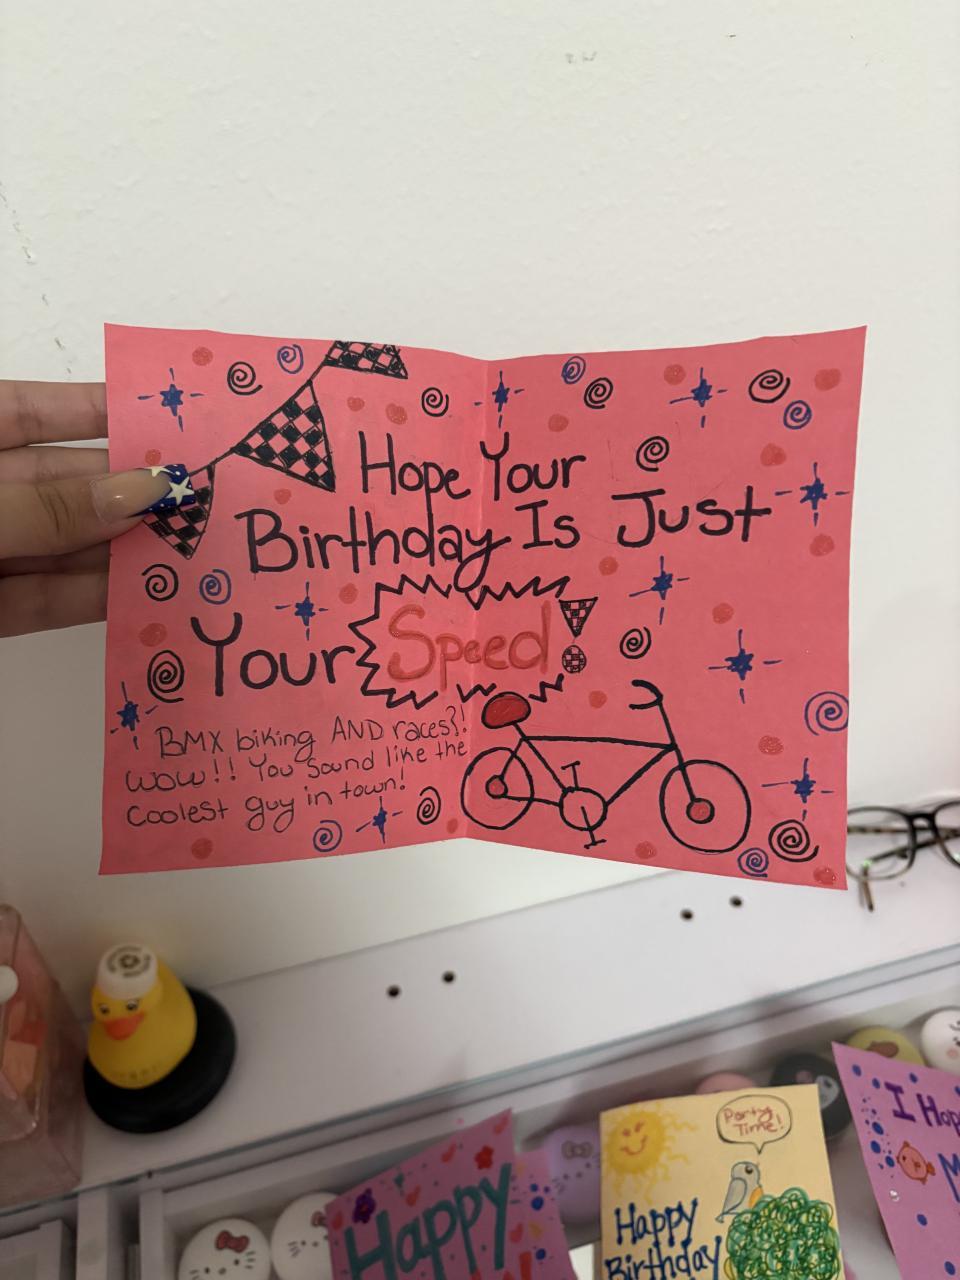 Hope Your
Birthday Is Just
Your Speed!
BMX biking AND races?!
WOW!! You sound like the
coolest guy in town!
Party
Time!
Happy
Happy
Birthday
I Hop